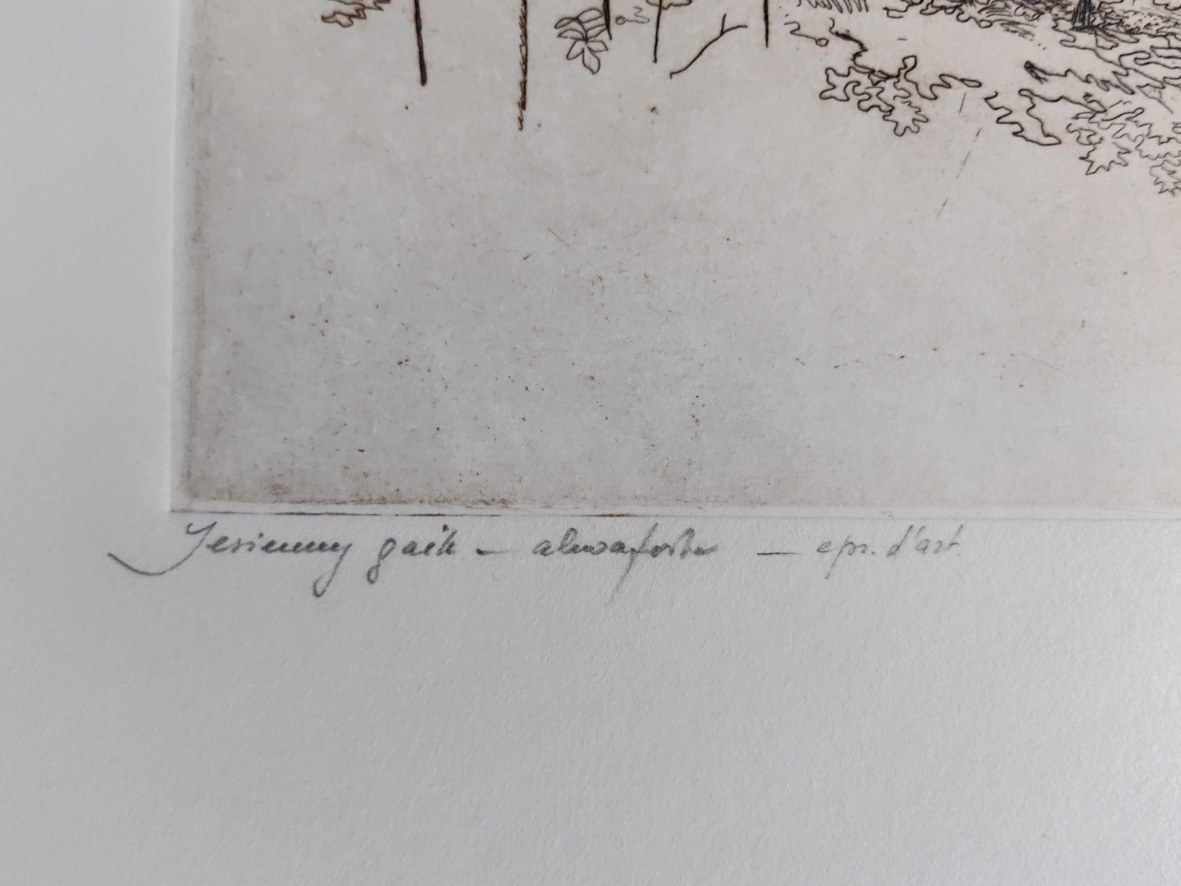 Jesienny gaik – akwaforta – epr. d'art.